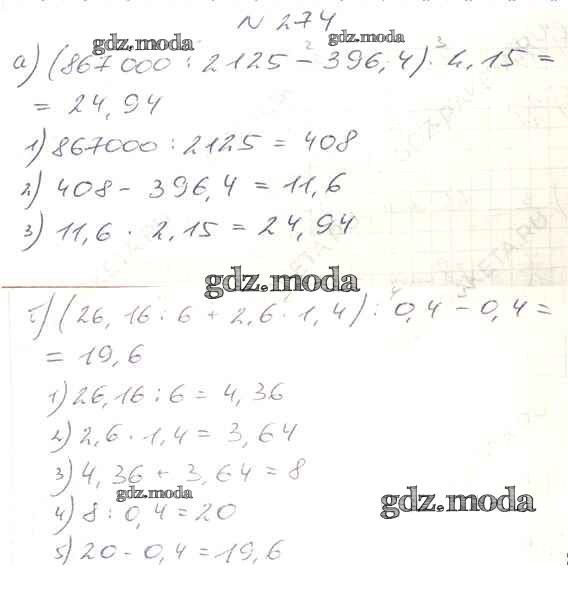 N 274
gdz.moda gdz.moda
а) (867 000 : 2125 - 396,4) · 2,15 =
= 24,94
1) 867000 : 2125 = 408
2) 408 - 396,4 = 11,6
3) 11,6 · 2,15 = 24,94
gdz.moda
б) (26,16 : 6 + 2,6 · 1,4) : 0,4 - 0,4 =
= 19,6
1) 26,16 : 6 = 4,36
2) 2,6 · 1,4 = 3,64
3) 4,36 + 3,64 = 8
gdz.moda gdz.moda
4) 8 : 0,4 = 20
5) 20 - 0,4 = 19,6